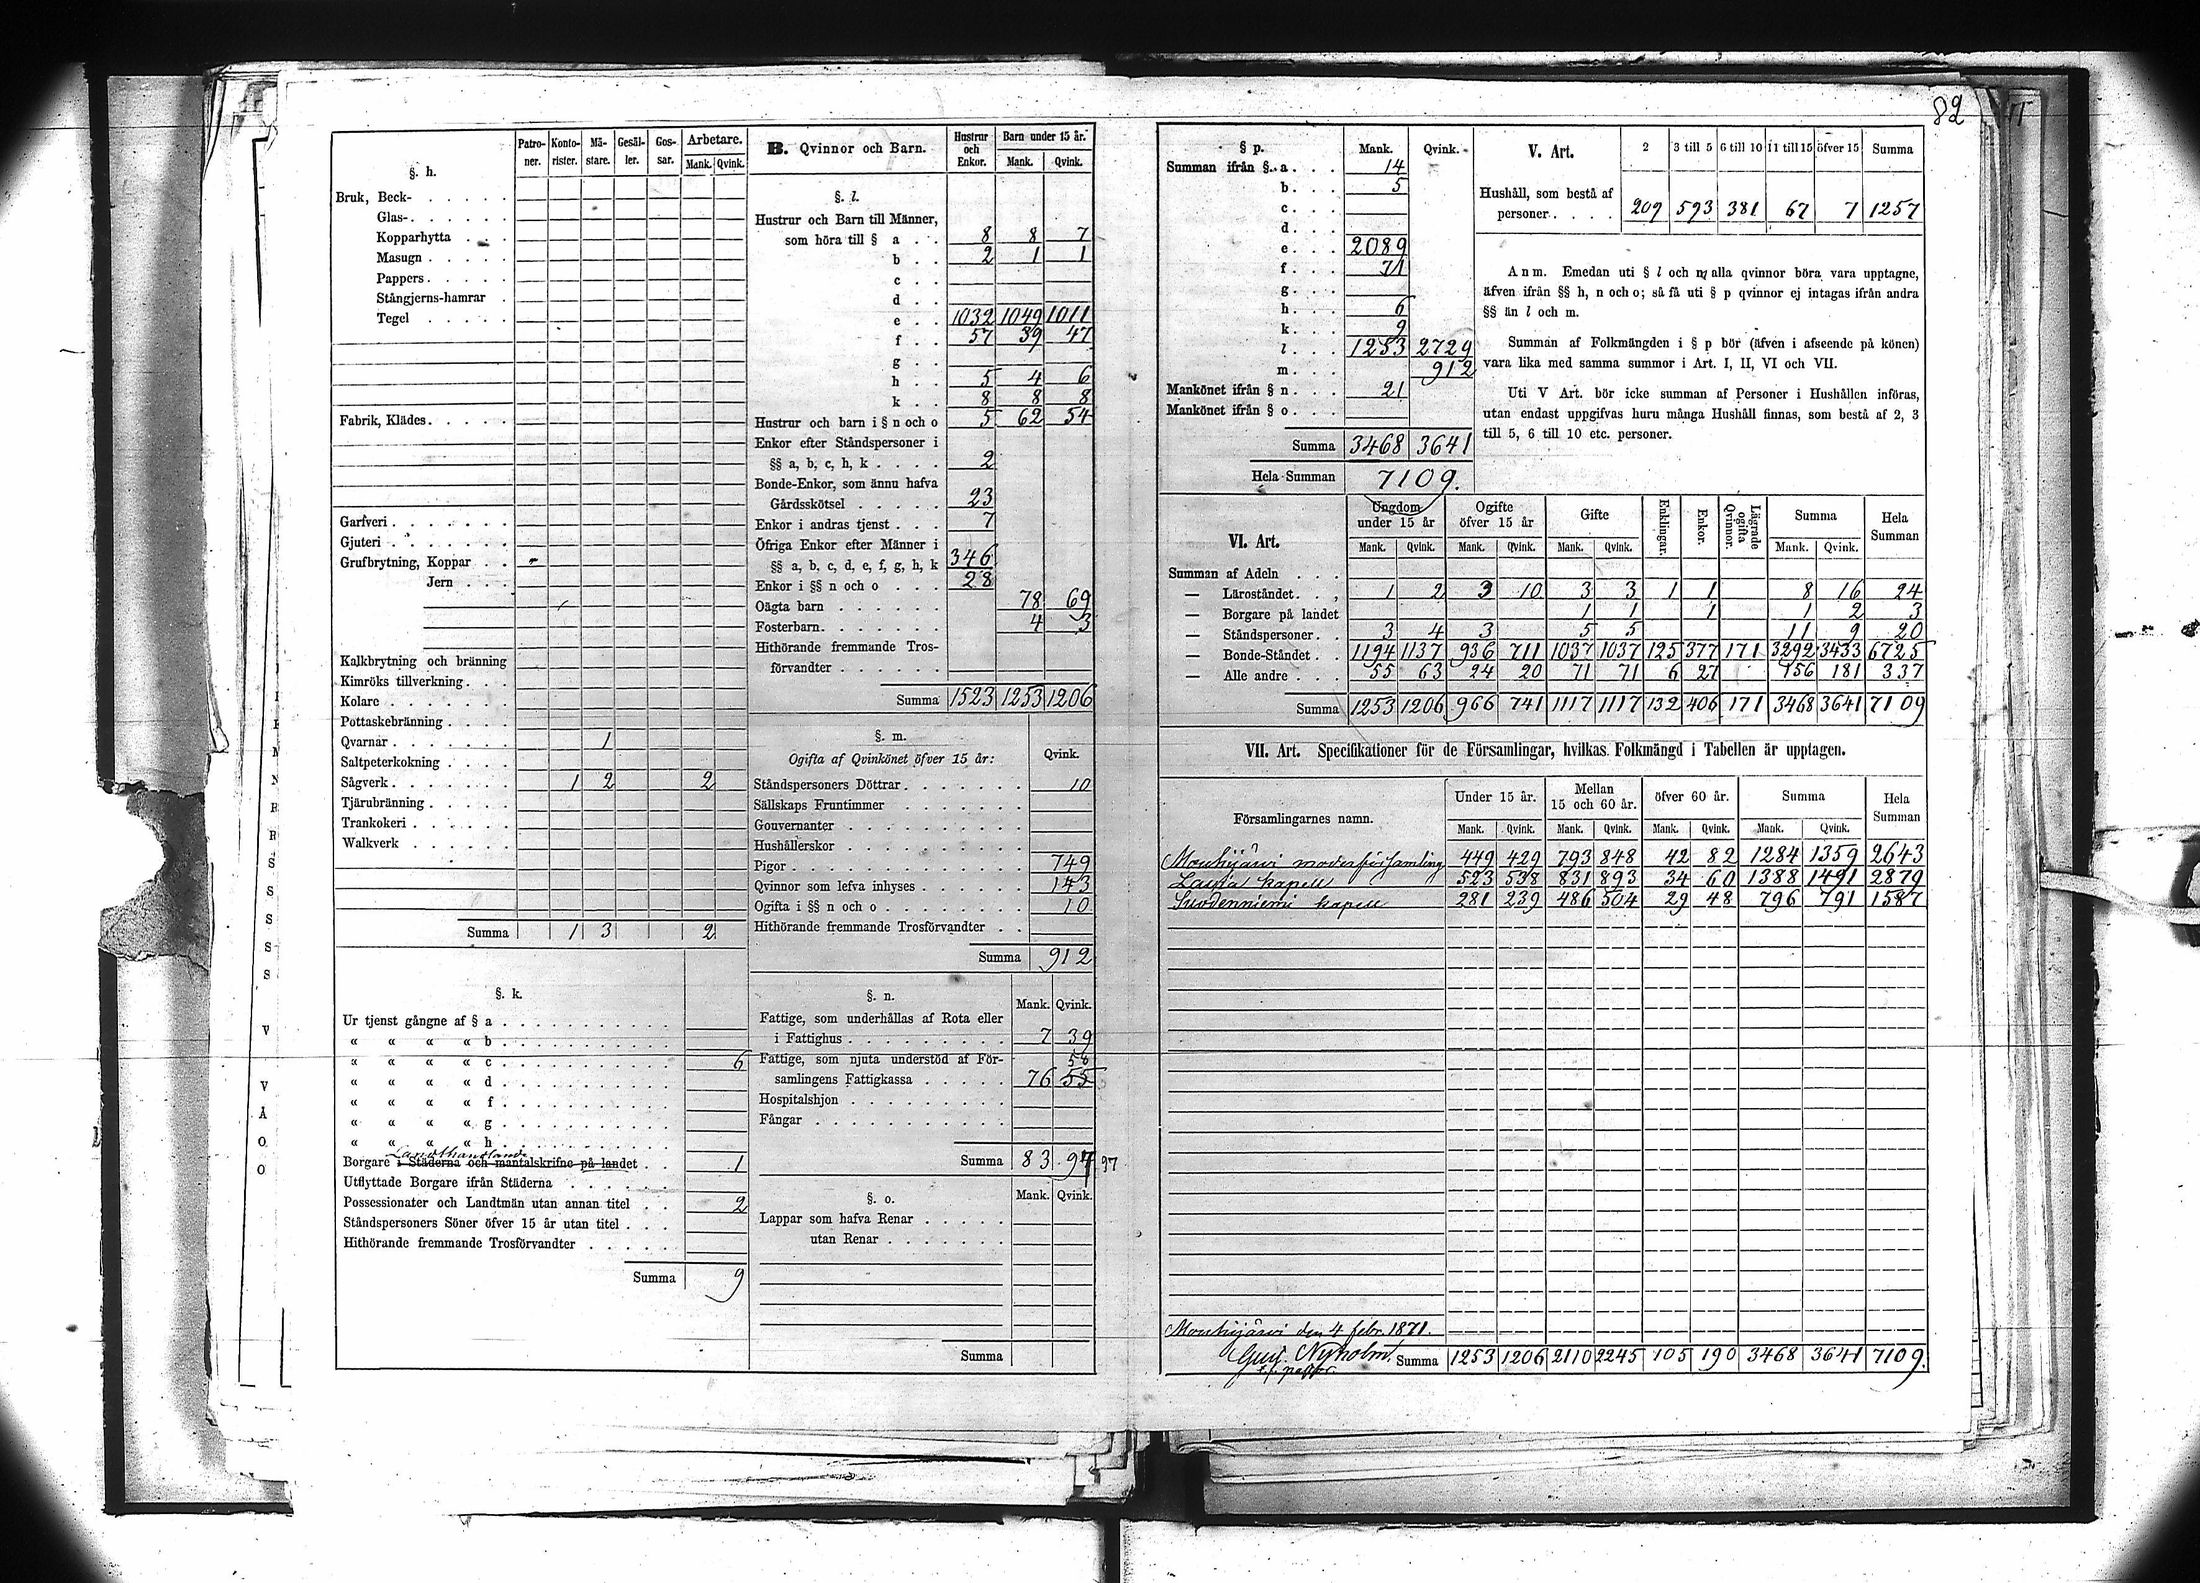 82
Patro-ner. Konto-rister. Mä-stare. Gesäl-ler. Gos-sar. Arbetare. Mank. Qvink.
§. h.
Bruk, Beck-
Glas-
Kopparhytta
Masugn
Pappers
Stångjerns-hamrar
Tegel
Fabrik, Klädes
Garfveri
Gjuteri
Grufbrytning, Koppar
Jern
Kalkbrytning och bränning
Kimröks tillverkning
Kolare
Pottaskebränning
Qvarnar 1
Saltpeterkokning
Sågverk 1 2 2
Tjärubränning
Trankokeri
Walkverk
Summa 1 3 2
§. k.
Ur tjenst gångne af § a
« « « « b
« « « « c 6
« « « « d
« « « « f
« « « « g
« « « « h
Landthandlande
Borgare i Städerna och mantalskrifne på landet 1
Utflyttade Borgare ifrån Städerna
Possessionater och Landtmän utan annan titel 2
Ståndspersoners Söner öfver 15 år utan titel
Hithörande fremmande Trosförvandter
Summa 9
B. Qvinnor och Barn. Hustrur och Enkor. Barn under 15 år. Mank. Qvink.
§. l.
Hustrur och Barn till Männer,
som höra till § a 8 8 7
b 2 1 1
c
d
e 1032 1049 1011
f 57 39 47
g
h 5 4 6
k 8 8 8
Hustrur och barn i § n och o 5 62 54
Enkor efter Ståndspersoner i
§§ a, b, c, h, k 2
Bonde-Enkor, som ännu hafva
Gårdsskötsel 23
Enkor i andras tjenst 7
Öfriga Enkor efter Männer i
§§ a, b, c, d, e, f, g, h, k 346
Enkor i §§ n och o 28
Oägta barn 78 69
Fosterbarn 4 3
Hithörande fremmande Tros-
förvandter
Summa 1523 1253 1206
§. m.
Ogifta af Qvinkönet öfver 15 år: Qvink.
Ståndspersoners Döttrar 10
Sällskaps Fruntimmer
Gouvernanter
Hushållerskor
Pigor 749
Qvinnor som lefva inhyses 143
Ogifta i §§ n och o 10
Hithörande fremmande Trosförvandter
Summa 912
§. n. Mank. Qvink.
Fattige, som underhållas af Rota eller
i Fattighus 7 39
Fattige, som njuta understöd af För- 58
samlingens Fattigkassa 76 55
Hospitalshjon
Fångar
Summa 83 97 97
§. o. Mank. Qvink.
Lappar som hafva Renar
utan Renar
Summa
§ p. Mank. Qvink.
Summan ifrån § a 14
b 5
c
d
e 2089
f 71
g
h 6
k 9
l 1253 2729
m 912
Mankönet ifrån § n 21
Mankönet ifrån § o
Summa 3468 3641
Hela Summan 7109.
V. Art. 2 3 till 5 6 till 10 11 till 15 öfver 15 Summa
Hushåll, som bestå af
personer 209 593 381 67 7 1257
Anm. Emedan uti § l och m alla qvinnor böra vara upptagne,
äfven ifrån §§ h, n och o; så få uti § p qvinnor ej intagas ifrån andra
§§ än l och m.
Summan af Folkmängden i § p bör (äfven i afseende på könen)
vara lika med samma summor i Art. I, II, VI och VII.
Uti V Art. bör icke summan af Personer i Hushållen införas,
utan endast uppgifvas huru många Hushåll finnas, som bestå af 2, 3
till 5, 6 till 10 etc. personer.
VI. Art. Ungdom under 15 år Ogifte öfver 15 år Gifte Enklingar. Enkor. Lägrade ogifta Qvinnor. Summa Hela Summan
Mank. Qvink. Mank. Qvink. Mank. Qvink. Mank. Qvink.
Summan af Adeln
— Läroståndet 1 2 3 10 3 3 1 1 8 16 24
— Borgare på landet 1 1 1 1 2 3
— Ståndspersoner 3 4 3 5 5 11 9 20
— Bonde-Ståndet 1194 1137 936 711 1037 1037 125 377 171 3292 3433 6725
— Alle andre 55 63 24 20 71 71 6 27 156 181 337
Summa 1253 1206 966 741 1117 1117 132 406 171 3468 3641 7109
VII. Art. Specifikationer för de Församlingar, hvilkas Folkmängd i Tabellen är upptagen.
Församlingarnes namn. Under 15 år. Mellan 15 och 60 år. öfver 60 år. Summa Hela Summan
Mank. Qvink. Mank. Qvink. Mank. Qvink. Mank. Qvink.
Mouhijärvi moderförsamling 449 429 793 848 42 82 1284 1359 2643
Lavia kapell 523 538 831 893 34 60 1388 1491 2879
Suodenniemi kapell 281 239 486 504 29 48 796 791 1587
Mouhijärvi den 4 febr. 1871.
Gust. Nyholm. Summa 1253 1206 2110 2245 105 190 3468 3641 7109.
t.f. pastor.